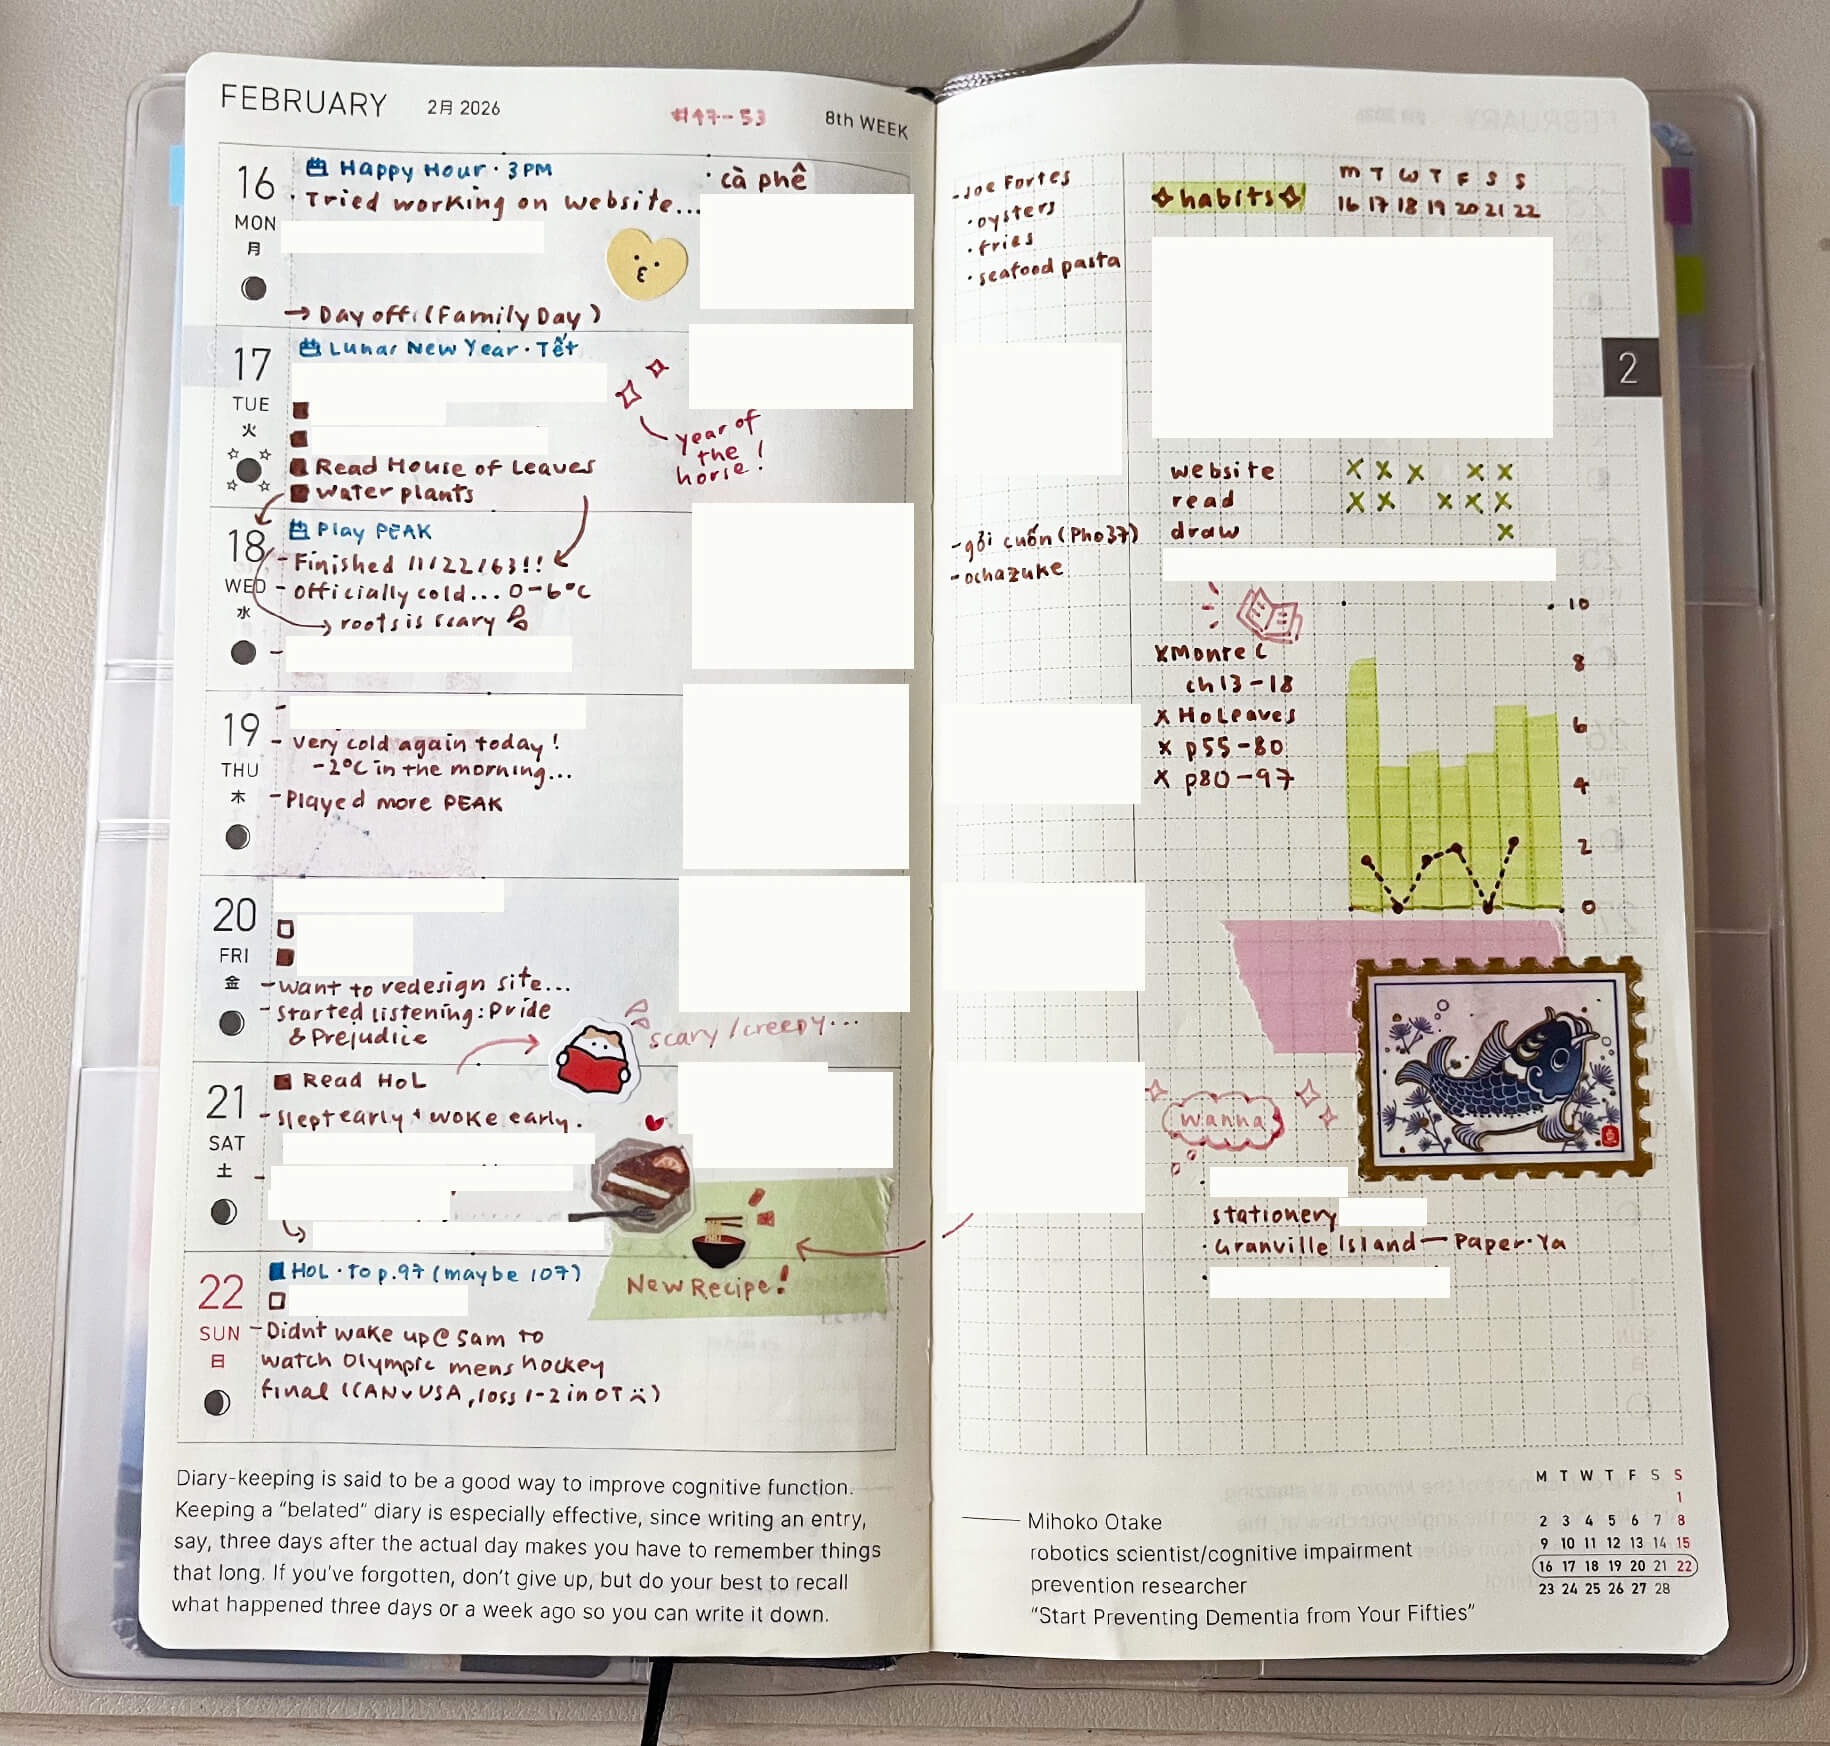 FEBRUARY 2月 2026 #47-53 8th WEEK
16
MON
月
Happy Hour · 3PM
· Tried working on website...
→ Day off! (Family Day)
· cà phê
17
TUE
火
Lunar New Year · Tết
Read House of Leaves
water plants
year of
the
horse!
18
WED
水
Play PEAK
- Finished 11/22/63!!
- officially cold... 0-6°C
→ roots is scary
19
THU
木
- very cold again today!
-2°C in the morning...
- Played more PEAK
20
FRI
金
- want to redesign site...
- started listening: Pride
& Prejudice
scary/creepy...
21
SAT
土
Read HoL
- slept early + woke early.
New Recipe!
22
SUN
日
HoL · to p.97 (maybe 107)
- Didnt wake up @ 5am to
watch Olympic mens hockey
final (CAN v USA, loss 1-2 in OT :()
Diary-keeping is said to be a good way to improve cognitive function.
Keeping a “belated” diary is especially effective, since writing an entry,
say, three days after the actual day makes you have to remember things
that long. If you’ve forgotten, don’t give up, but do your best to recall
what happened three days or a week ago so you can write it down.
- Joe Fortes
· oysters
· fries
· seafood pasta
- gỏi cuốn (Pho37)
- ochazuke
habits
M T W T F S S
16 17 18 19 20 21 22
website x x x x x
read x x x x x
draw x
2
x Monte C
ch 13-18
x HoLeaves
x p55-80
x p80-97
10
8
6
4
2
0
wanna
stationery
· Granville Island - Paper-Ya
Mihoko Otake
robotics scientist/cognitive impairment
prevention researcher
“Start Preventing Dementia from Your Fifties”
M T W T F S S
1
2 3 4 5 6 7 8
9 10 11 12 13 14 15
16 17 18 19 20 21 22
23 24 25 26 27 28